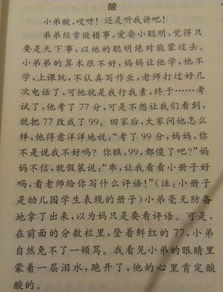 酸
小弟酸,哎呀!还是听我讲吧!
弟弟经常做错事,爱耍小聪明,觉得只
要是天下事,以他的聪明绝对能蒙过去。
小弟弟的算术很不好,妈妈让他学,他不
学,上课玩,不认真写作业,老师打过好几
次电话了,可他就是我行我素,终于……考试
了,他考了77分,可是不想让我们看到,
就把77改成了99。回家后,大家问他怎么
样,他得意洋洋地说:“考了99分,妈妈,你
不是说我不好吗?你瞧,99,都傻了吧?”妈妈
不信,就假装说:“乖,让我看看小册子好
吗,看老师给你写什么评语!”(注:小册子
是幼儿园学生表现的册子)小弟毫无防备
地拿了出来,以为妈只是要看评语。可是,
在前面的分数栏里,登着鲜红的77,小弟
自然免不了一顿骂。我看见小弟的眼睛里
蒙着一层泪水,跑开了,他的心里肯定酸
酸的。